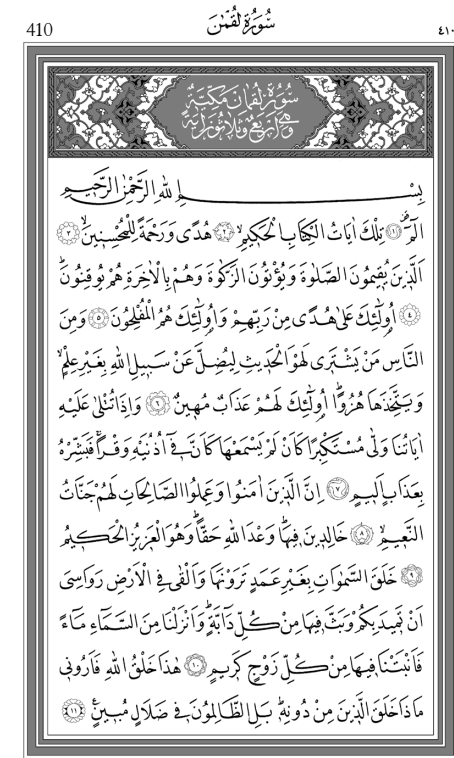 410
سُورَةُ لُقْمٰنَ
٤١٠
سُورَةُ لُقْمَانَ مَكِّيَّةٌ
وَهِيَ اَرْبَعٌ وَثَلَاثُونَ اٰيَةً
بِسْمِ اللهِ الرَّحْمٰنِ الرَّحِيمِ
الٓمٓۚ ﴿١﴾ تِلْكَ اٰيَاتُ الْكِتَابِ الْحَكِيمِۙ ﴿٢﴾ هُدًى وَرَحْمَةً لِلْمُحْسِنِينَۙ ﴿٣﴾
اَلَّذِينَ يُقِيمُونَ الصَّلٰوةَ وَيُؤْتُونَ الزَّكٰوةَ وَهُمْ بِالْاٰخِرَةِ هُمْ يُوقِنُونَۜ
﴿٤﴾ اُو۬لٰٓئِكَ عَلٰى هُدًى مِنْ رَبِّهِمْ وَاُو۬لٰٓئِكَ هُمُ الْمُفْلِحُونَ ﴿٥﴾ وَمِنَ
النَّاسِ مَنْ يَشْتَرِي لَهْوَ الْحَدِيثِ لِيُضِلَّ عَنْ سَبِيلِ اللهِ بِغَيْرِ عِلْمٍۗ
وَيَتَّخِذَهَا هُزُوًاۜ اُو۬لٰٓئِكَ لَهُمْ عَذَابٌ مُهِينٌ ﴿٦﴾ وَاِذَا تُتْلٰى عَلَيْهِ
اٰيَاتُنَا وَلّٰى مُسْتَكْبِرًا كَاَنْ لَمْ يَسْمَعْهَا كَاَنَّ فٓي اُذُنَيْهِ وَقْرًاۚ فَبَشِّرْهُ
بِعَذَابٍ اَلِيمٍ ﴿٧﴾ اِنَّ الَّذِينَ اٰمَنُوا وَعَمِلُوا الصَّالِحَاتِ لَهُمْ جَنَّاتُ
النَّعِيمِۙ ﴿٨﴾ خَالِدِينَ فِيهَاۜ وَعْدَ اللهِ حَقًّاۜ وَهُوَ الْعَزِيزُ الْحَكِيمُ
﴿٩﴾ خَلَقَ السَّمٰوَاتِ بِغَيْرِ عَمَدٍ تَرَوْنَهَا وَاَلْقٰى فِي الْاَرْضِ رَوَاسِيَ
اَنْ تَمِيدَ بِكُمْ وَبَثَّ فِيهَا مِنْ كُلِّ دَٓابَّةٍۜ وَاَنْزَلْنَا مِنَ السَّمَٓاءِ مَٓاءً
فَاَنْبَتْنَا فِيهَا مِنْ كُلِّ زَوْجٍ كَرِيمٍ ﴿١٠﴾ هٰذَا خَلْقُ اللهِ فَاَرُونِي
مَاذَا خَلَقَ الَّذِينَ مِنْ دُونِهِۜ بَلِ الظَّالِمُونَ فِي ضَلَالٍ مُبِينٍ۟ ﴿١١﴾